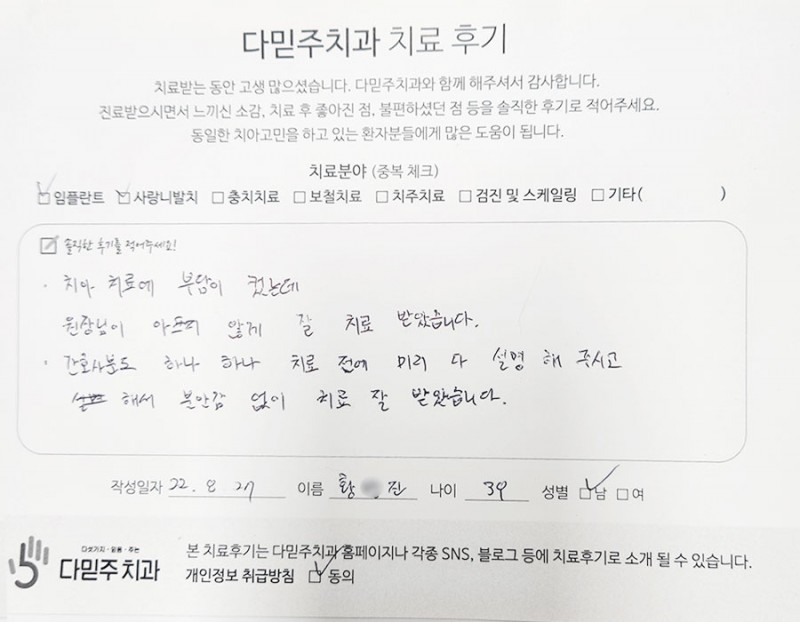 다믿주치과 치료 후기
치료받는 동안 고생 많으셨습니다. 다믿주치과와 함께 해주셔서 감사합니다.
진료받으시면서 느끼신 소감, 치료 후 좋아진 점, 불편하셨던 점 등을 솔직한 후기로 적어주세요.
동일한 치아고민을 하고 있는 환자분들에게 많은 도움이 됩니다.
치료분야 (중복 체크)
임플란트 사랑니발치 충치치료 보철치료 치주치료 검진 및 스케일링 기타( )
솔직한 후기를 적어주세요!
· 치아 치료에 부담이 컸는데
원장님이 아프지 않게 잘 치료 받았습니다.
· 간호사분도 하나 하나 치료 전에 미리 다 설명 해 주시고
해서 불안감 없이 치료 잘 받았습니다.
작성일자 22. 8. 27 이름 황 진 나이 39 성별 남 여
다섯가지·믿음·주는
다믿주치과
본 치료후기는 다믿주치과 홈페이지나 각종 SNS, 블로그 등에 치료후기로 소개 될 수 있습니다.
개인정보 취급방침 동의